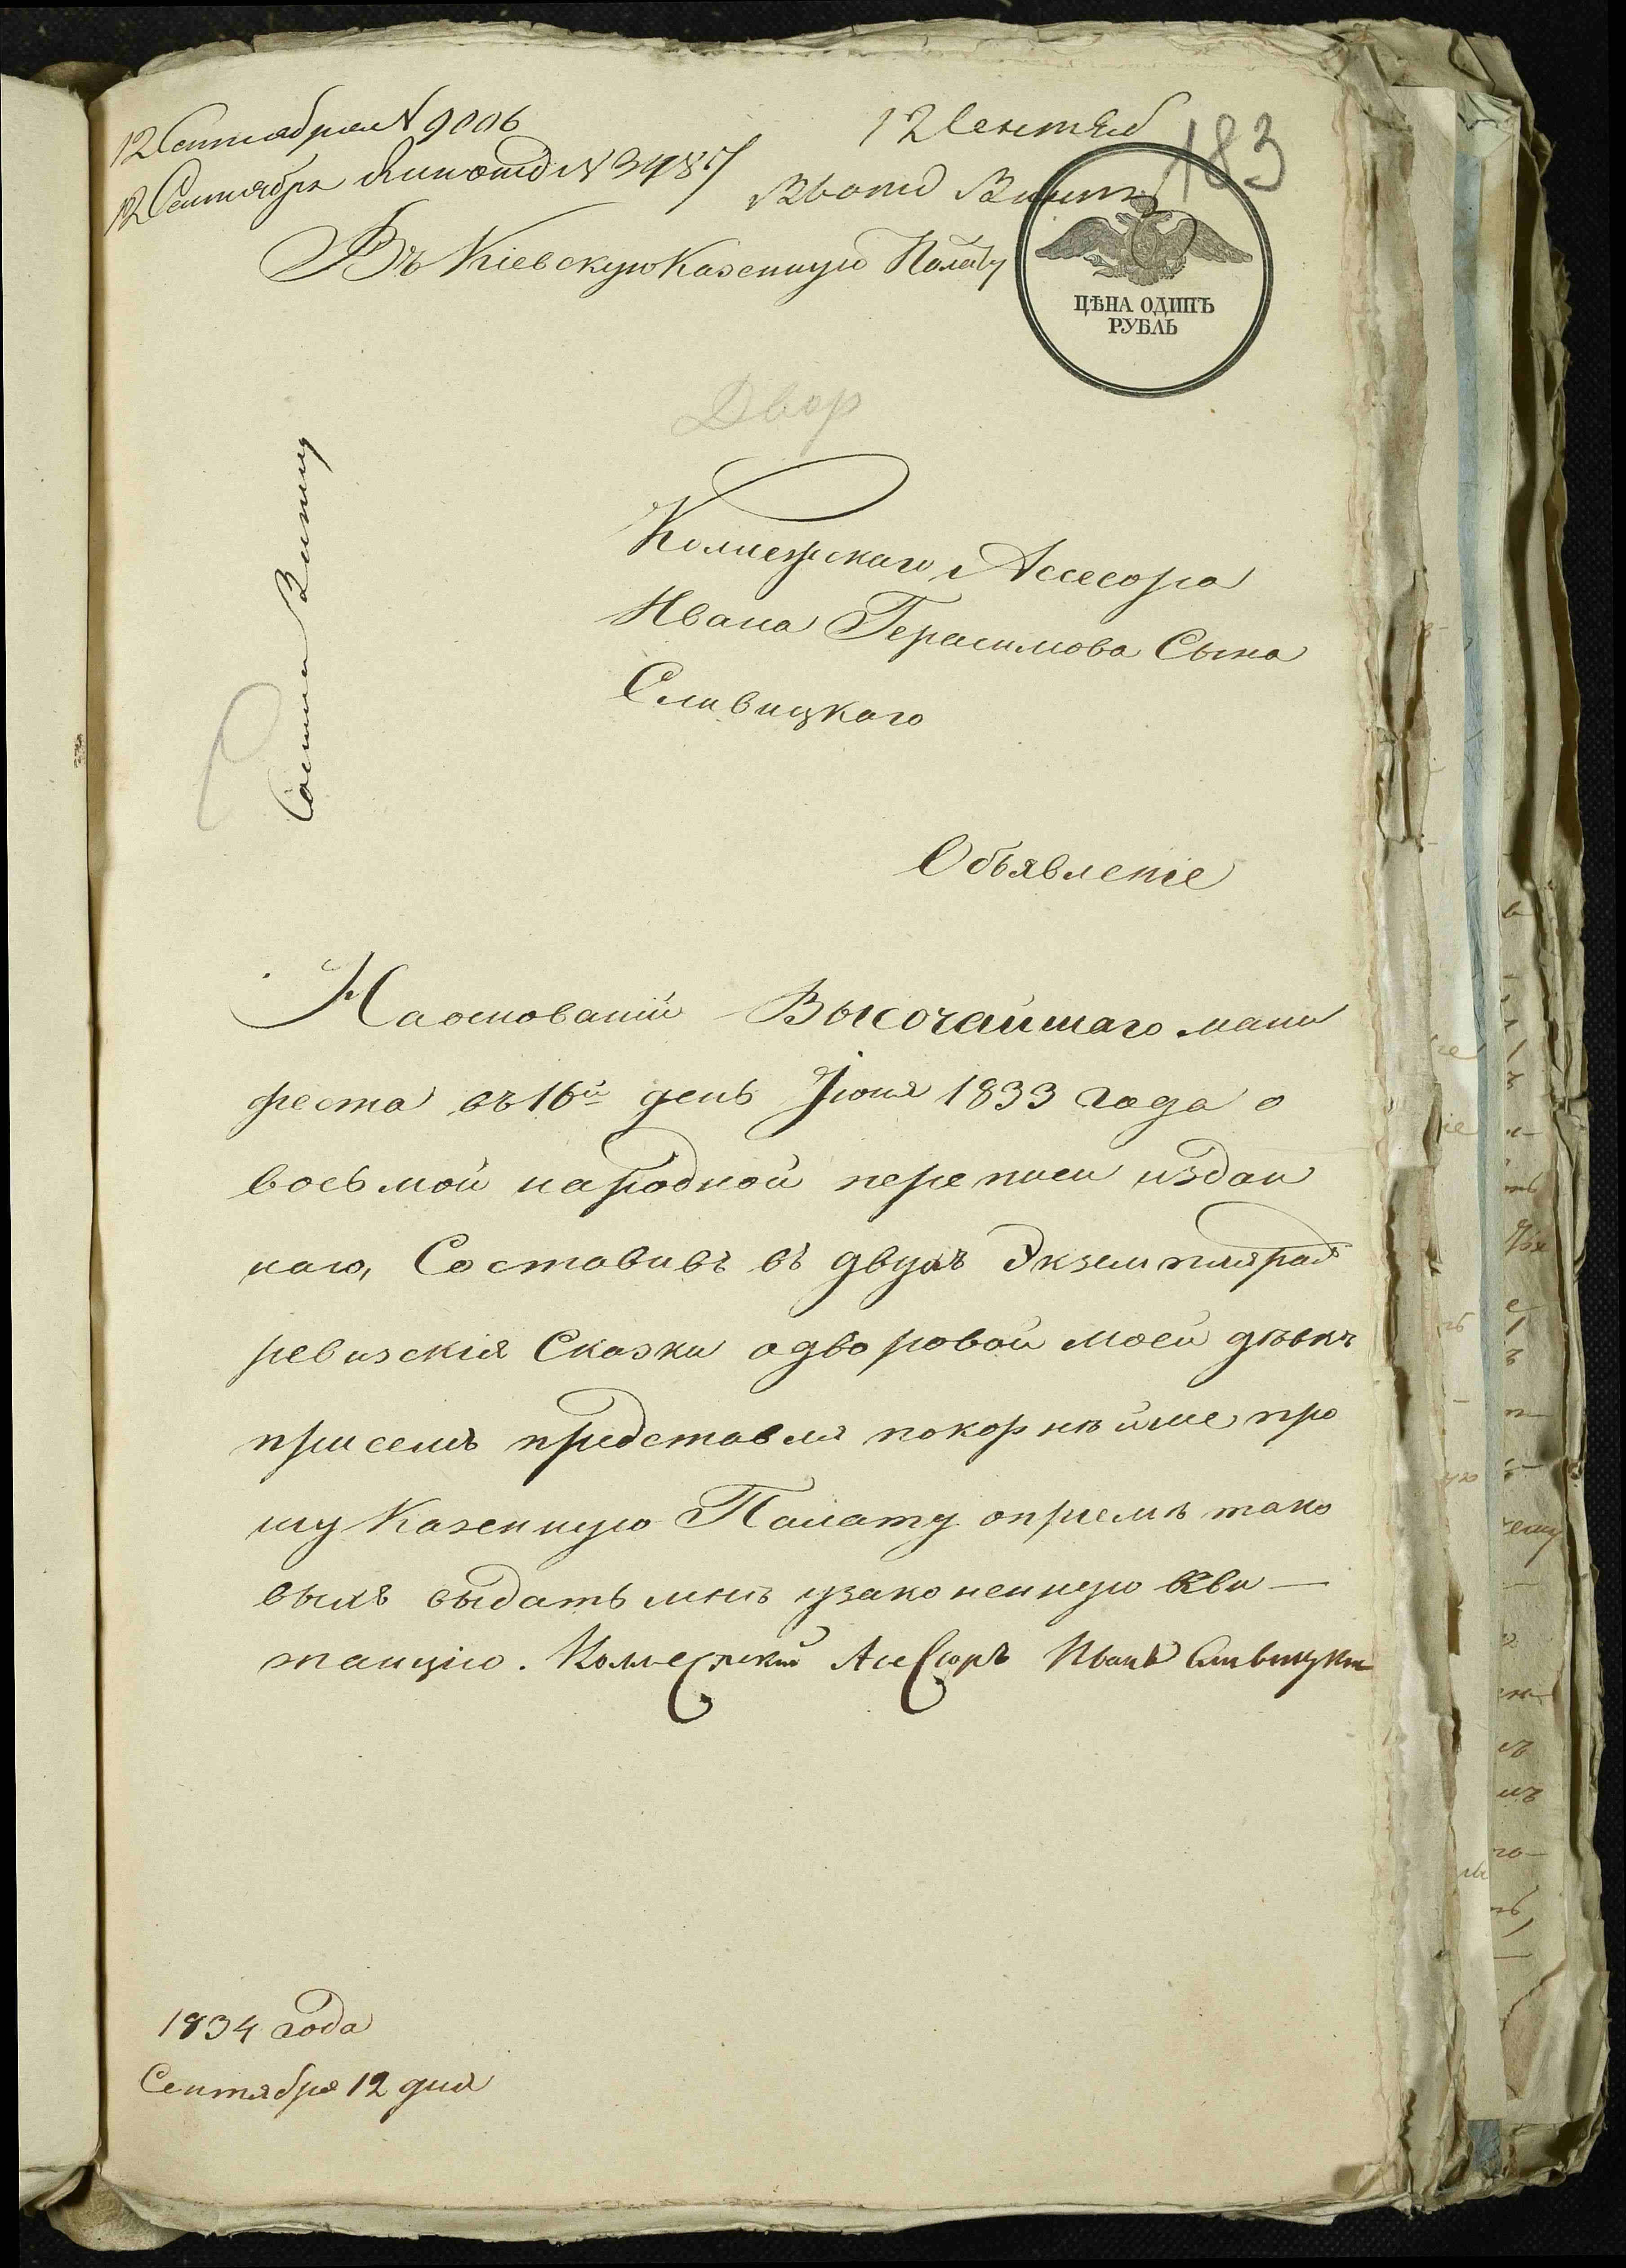 12 Сентября № 9006
12 Сентября № 3487
12 Сентяб
183
Въ Кіевскую Казенную Палату
ЦѢНА ОДИНЪ
РУБЛЬ
Двор
Колежскаго Ассесора
Ивана Герасимова Сына
Сливицкаго
Объявленіе
На основаніи Высочайшаго мани
феста въ 16й день Іюня 1833 года о
восьмой народной переписи издан
наго, Составивъ въ двухъ Экземплярах
ревизскія Сказки о дворовой моей дѣвкѣ
при семъ представля покорнѣйше про
шу Казенную Палату о пріемѣ тако
выхъ выдать мнѣ узаконенную Кви-
танцію. Коллежский Ассесоръ Иванъ Сливицкий
1834 года
Сентября 12 дня